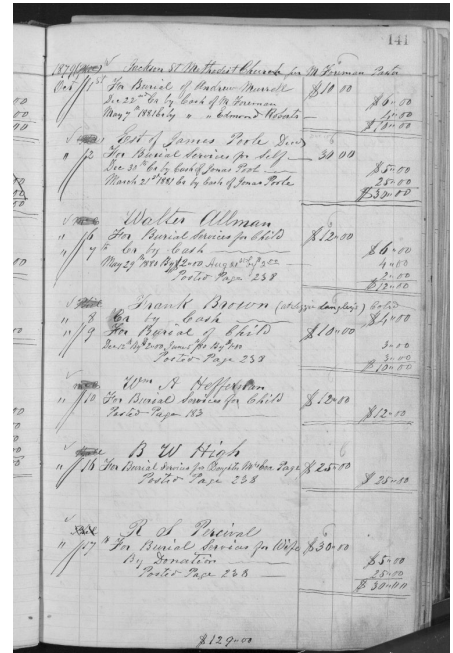 141
1879 Jackson St Methodist Church for M Foreman Pastor
Oct 1st For Burial of Andrew Murrell $10"00
Dec 22nd Cr by Cash of M Foreman $6"00
May 7th 1881 by " " Edmond Roberts 4"00
$10"00
Est of James Poole Decd
" 2 For Burial Services for Self 30"00
Dec 30th Cr by Cash of Jonas Pool $5"00
March 21st 1881 Cr by Cash of Jonas Poole 25"00
$30"00
Walter Allman
" 6 For Burial Services for Child $12"00
" 7 Cr by Cash $6"00
May 29th 1880 By $2"00 Aug 28 4"00
Posted Page 238 2"00
$12"00
Frank Brown (at Aggie Langley's)
" 8 Cr by Cash $4"00
" 9 For Burial of Child $10"00
3"00
Posted Page 238 3"00
$10"00
Wm A Heffernan
" 10 For Burial Services for Child $12"00
Posted Page 183 $12"00
B W High
" 16 For Burial Services for Daughter Page $25"00
Posted Page 238 $25"00
R S Percival
" 17 " For Burial Services for Wife $30"00
By Donation $5"00
Posted Page 238 25"00
$30"00
$129"00